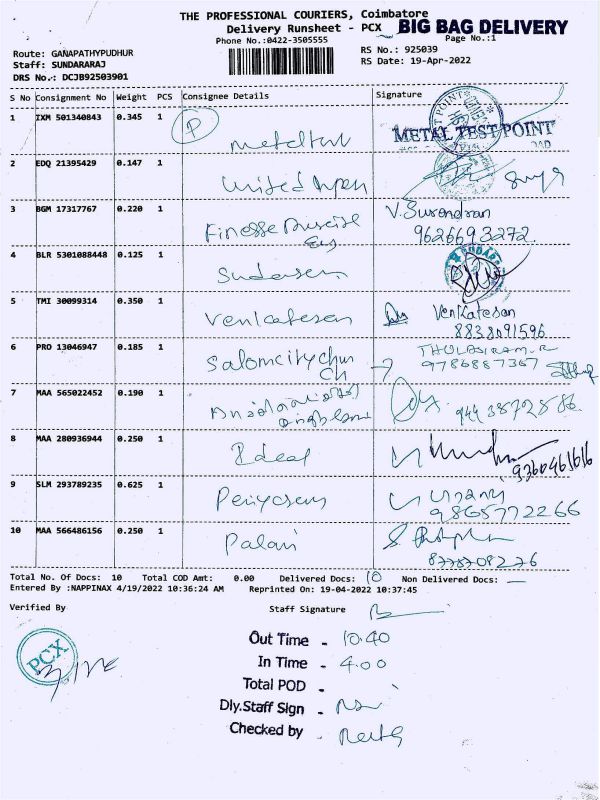 THE PROFESSIONAL COURIERS, Coimbatore
Delivery Runsheet - PCX BIG BAG DELIVERY
Phone No.:0422-3505555 Page No.:1
Route: GANAPATHYPUDHUR RS No.: 925039
Staff: SUNDARARAJ RS Date: 19-Apr-2022
DRS No.: DCJB92503901
S No Consignment No Weight PCS Consignee Details Signature
1 IXM 501340843 0.345 1 P
METAL TEST POINT
2 EDQ 21395429 0.147 1 United
3 BGM 17317767 0.220 1 Finesse V. Surendran
9626693272
4 BLR 5301088448 0.125 1
5 TMI 30099314 0.350 1 Venkatesan Venkatesan
8838091596
6 PRO 13046947 0.185 1 THULASIRAM.R
Ch 9786887367
7 MAA 565022452 0.190 1
8 MAA 280936944 0.250 1 Ideal
9360461616
9 SLM 293789235 0.625 1
9865772266
10 MAA 566486156 0.250 1 Palani
Total No. Of Docs: 10 Total COD Amt: 0.00 Delivered Docs: 10 Non Delivered Docs:
Entered By :NAPPINAX 4/19/2022 10:36:24 AM Reprinted On: 19-04-2022 10:37:45
Verified By Staff Signature
PCX
Out Time - 10.40
In Time - 4.00
Total POD -
Dly.Staff Sign -
Checked by -